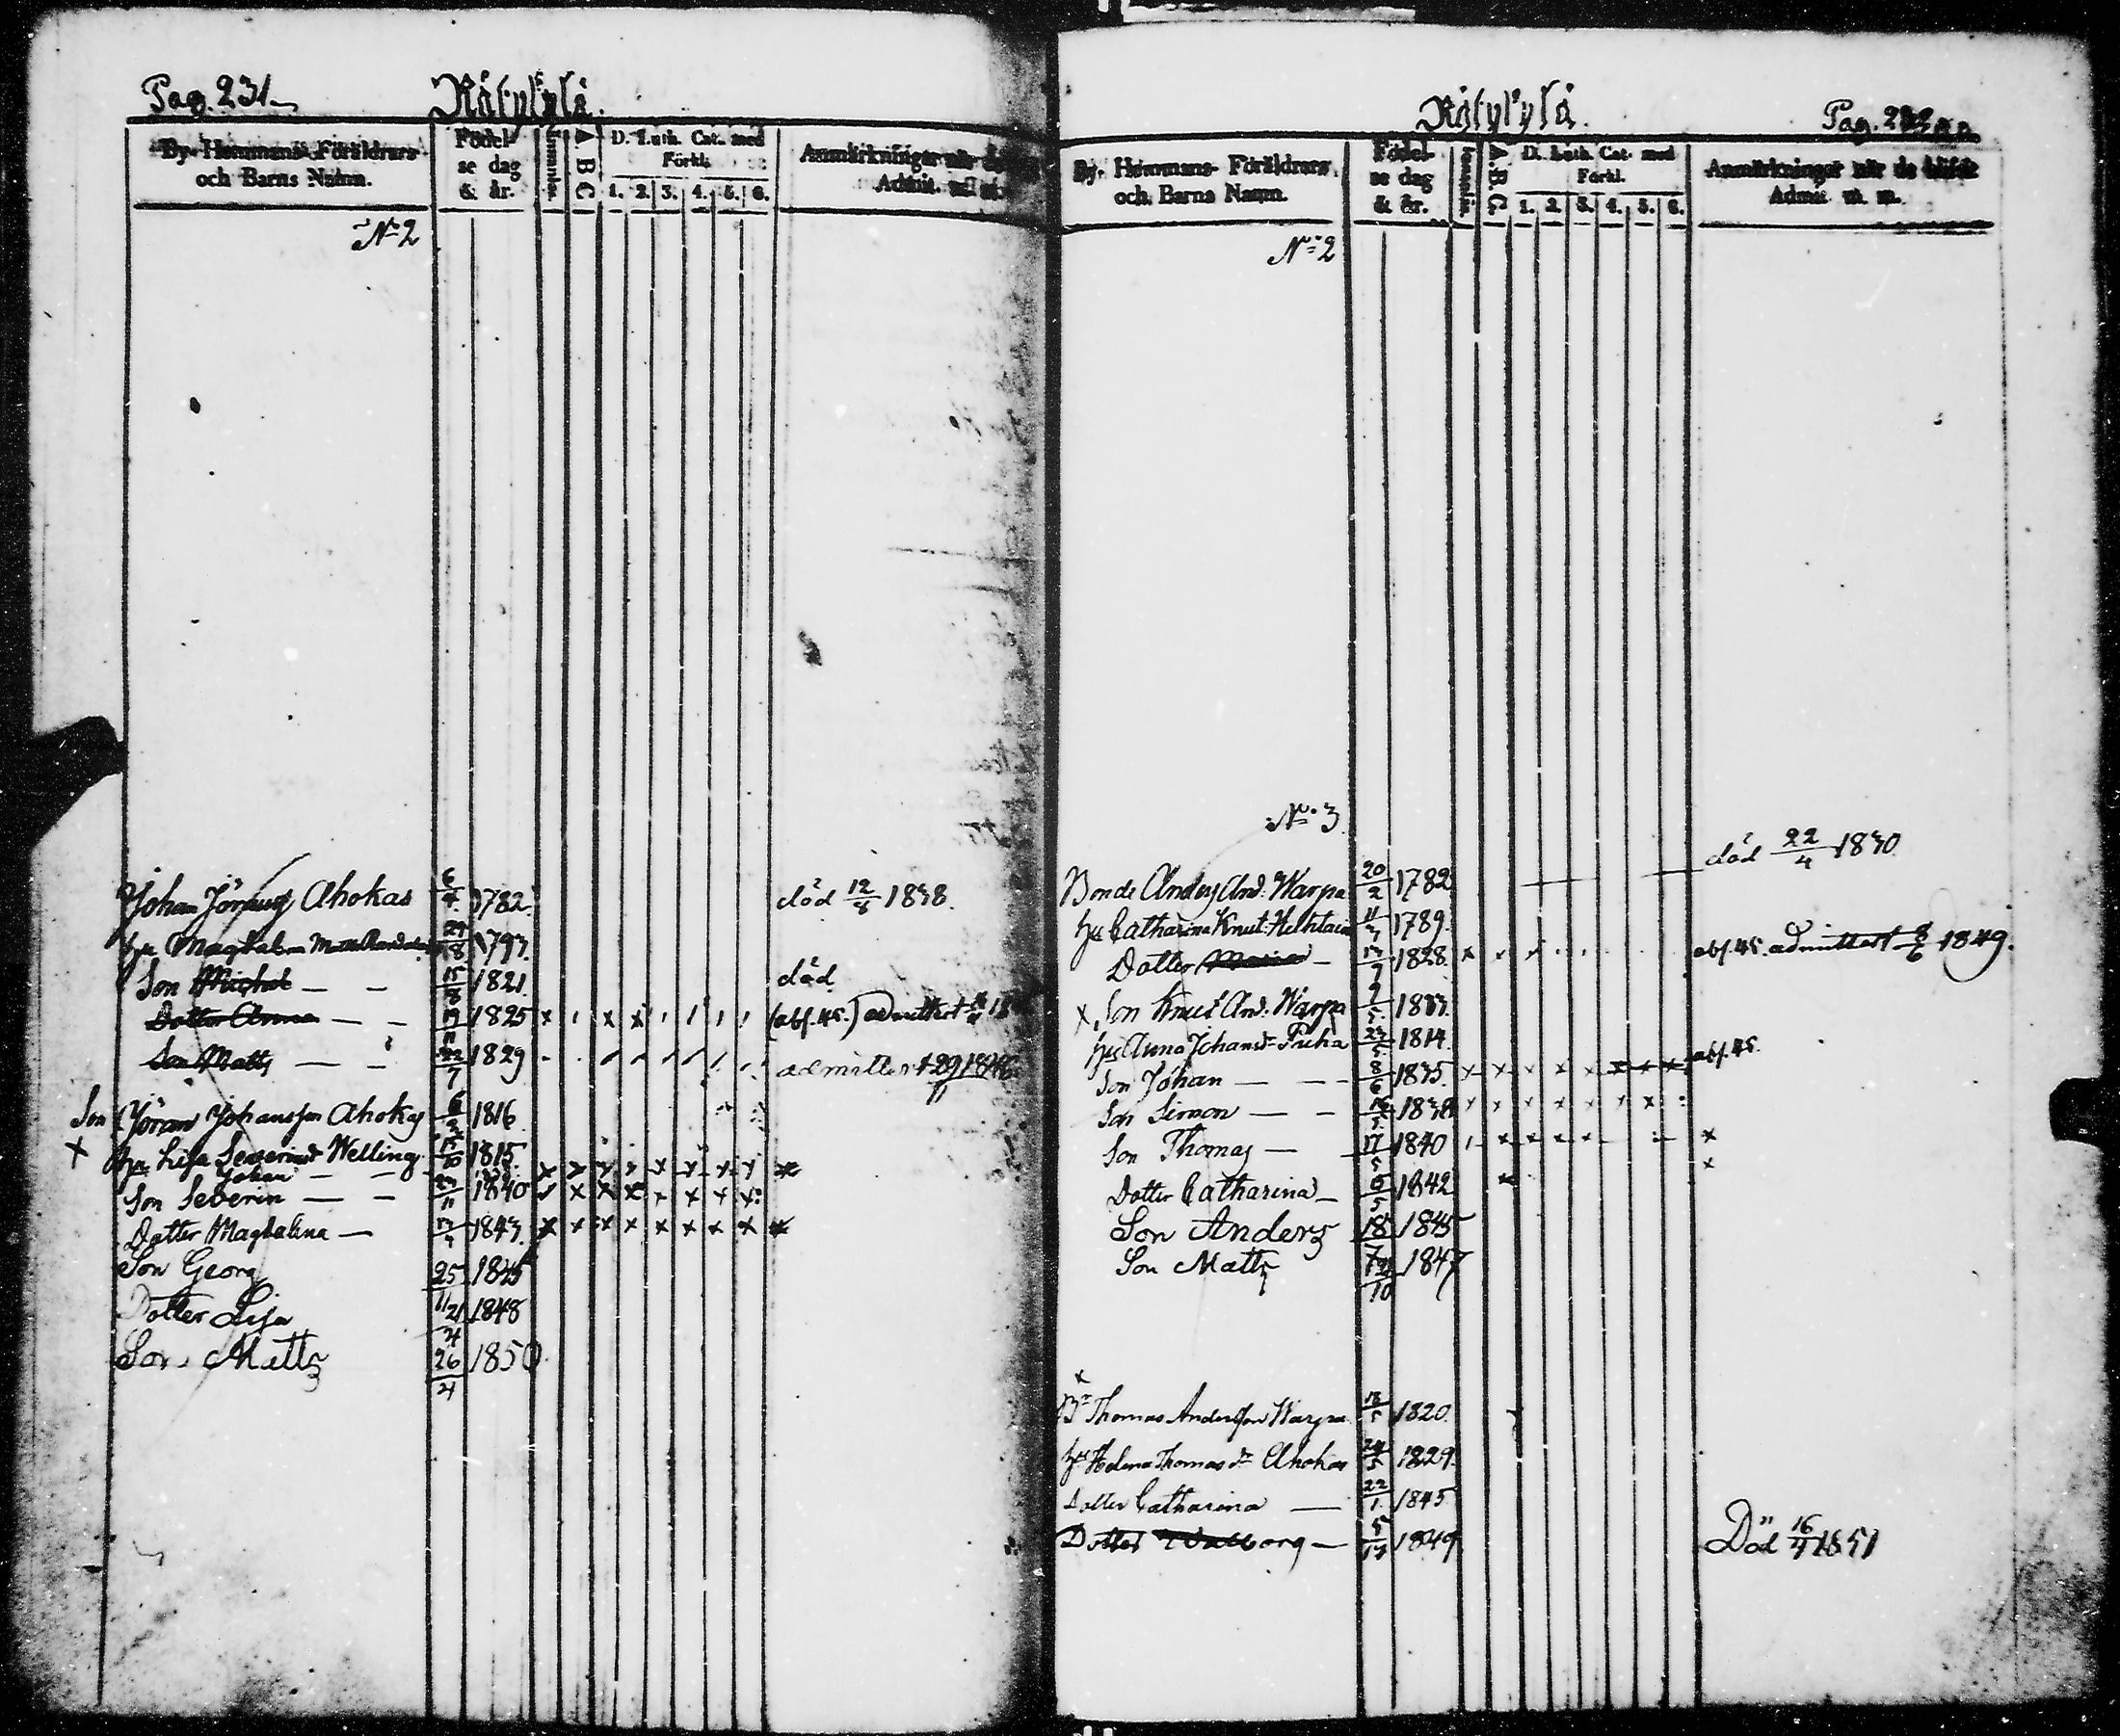 Pag. 231
Rätykylä.
By- Hemmans- Föräldrars
och Barns Namn.
Födel-
se dag
& år.
Innanläs.
A B C
D. Luth. Cat. med
Förkl.
1. 2. 3. 4. 5. 6.
Anmärkningar när de
Admit. m. m.
N:o 2
Johan Ahokas 6/4 1782. död 12/8 1838.
hu Magdalena 1793.
Son Michel — — 15/8 1821 död
Dotter Anna — — 19/11 1825 x x x (abs. 45.) admitterat
Son Matts — — 22/7 1829 admitterat 29 1846
Son Jöran Johansson Ahokas 1816
x hu Lisa Severinsdr Welling 15/10 1815.
Johan — — x x x x x x x x x
Son Severin — — 1840 x x x x x x x
Dotter Magdalena — 1843. x x x x x x x x x
Son Georg 25/11 1845
Dotter Lisa 21/4 1848
Son Matts 26/4 1850
Rätykylä.
Pag. 232
By- Hemmans- Föräldrars
och Barns Namn.
Födel-
se dag
& år.
Innanläs.
A. B. C.
D. Luth. Cat. med
Förkl.
1. 2. 3. 4. 5. 6.
Anmärkningar när de blifvit
Admit. m. m.
N:o 2
N:o 3
död 22/4 1840
Bonde Anders And. Warpa 20/2 1782
hu Catharina Knut. 1789.
Dotter Maria — 1828. x abs. 45. admitterat 1849.
x Son Knut And. Warpa
hu Anna Johansdr Puha 1814.
Son Johan — — 8/6 1835. x x x x x x x x abs. 45.
Son Simon — — 1838 x x x x x x x
Son Thomas — 17/5 1840 x x x x x
Dotter Catharina — 1842 x x
Son Anders 18/7 1845
Son Matts 21/10 1847
x
Thomas Andersson Warpa 18/5 1820.
hu Helena Thomasdr Ahokas 24/5 1829.
Dotter Catharina — 22/1 1845
Dotter Walborg — 1849 Död 16/4 1851